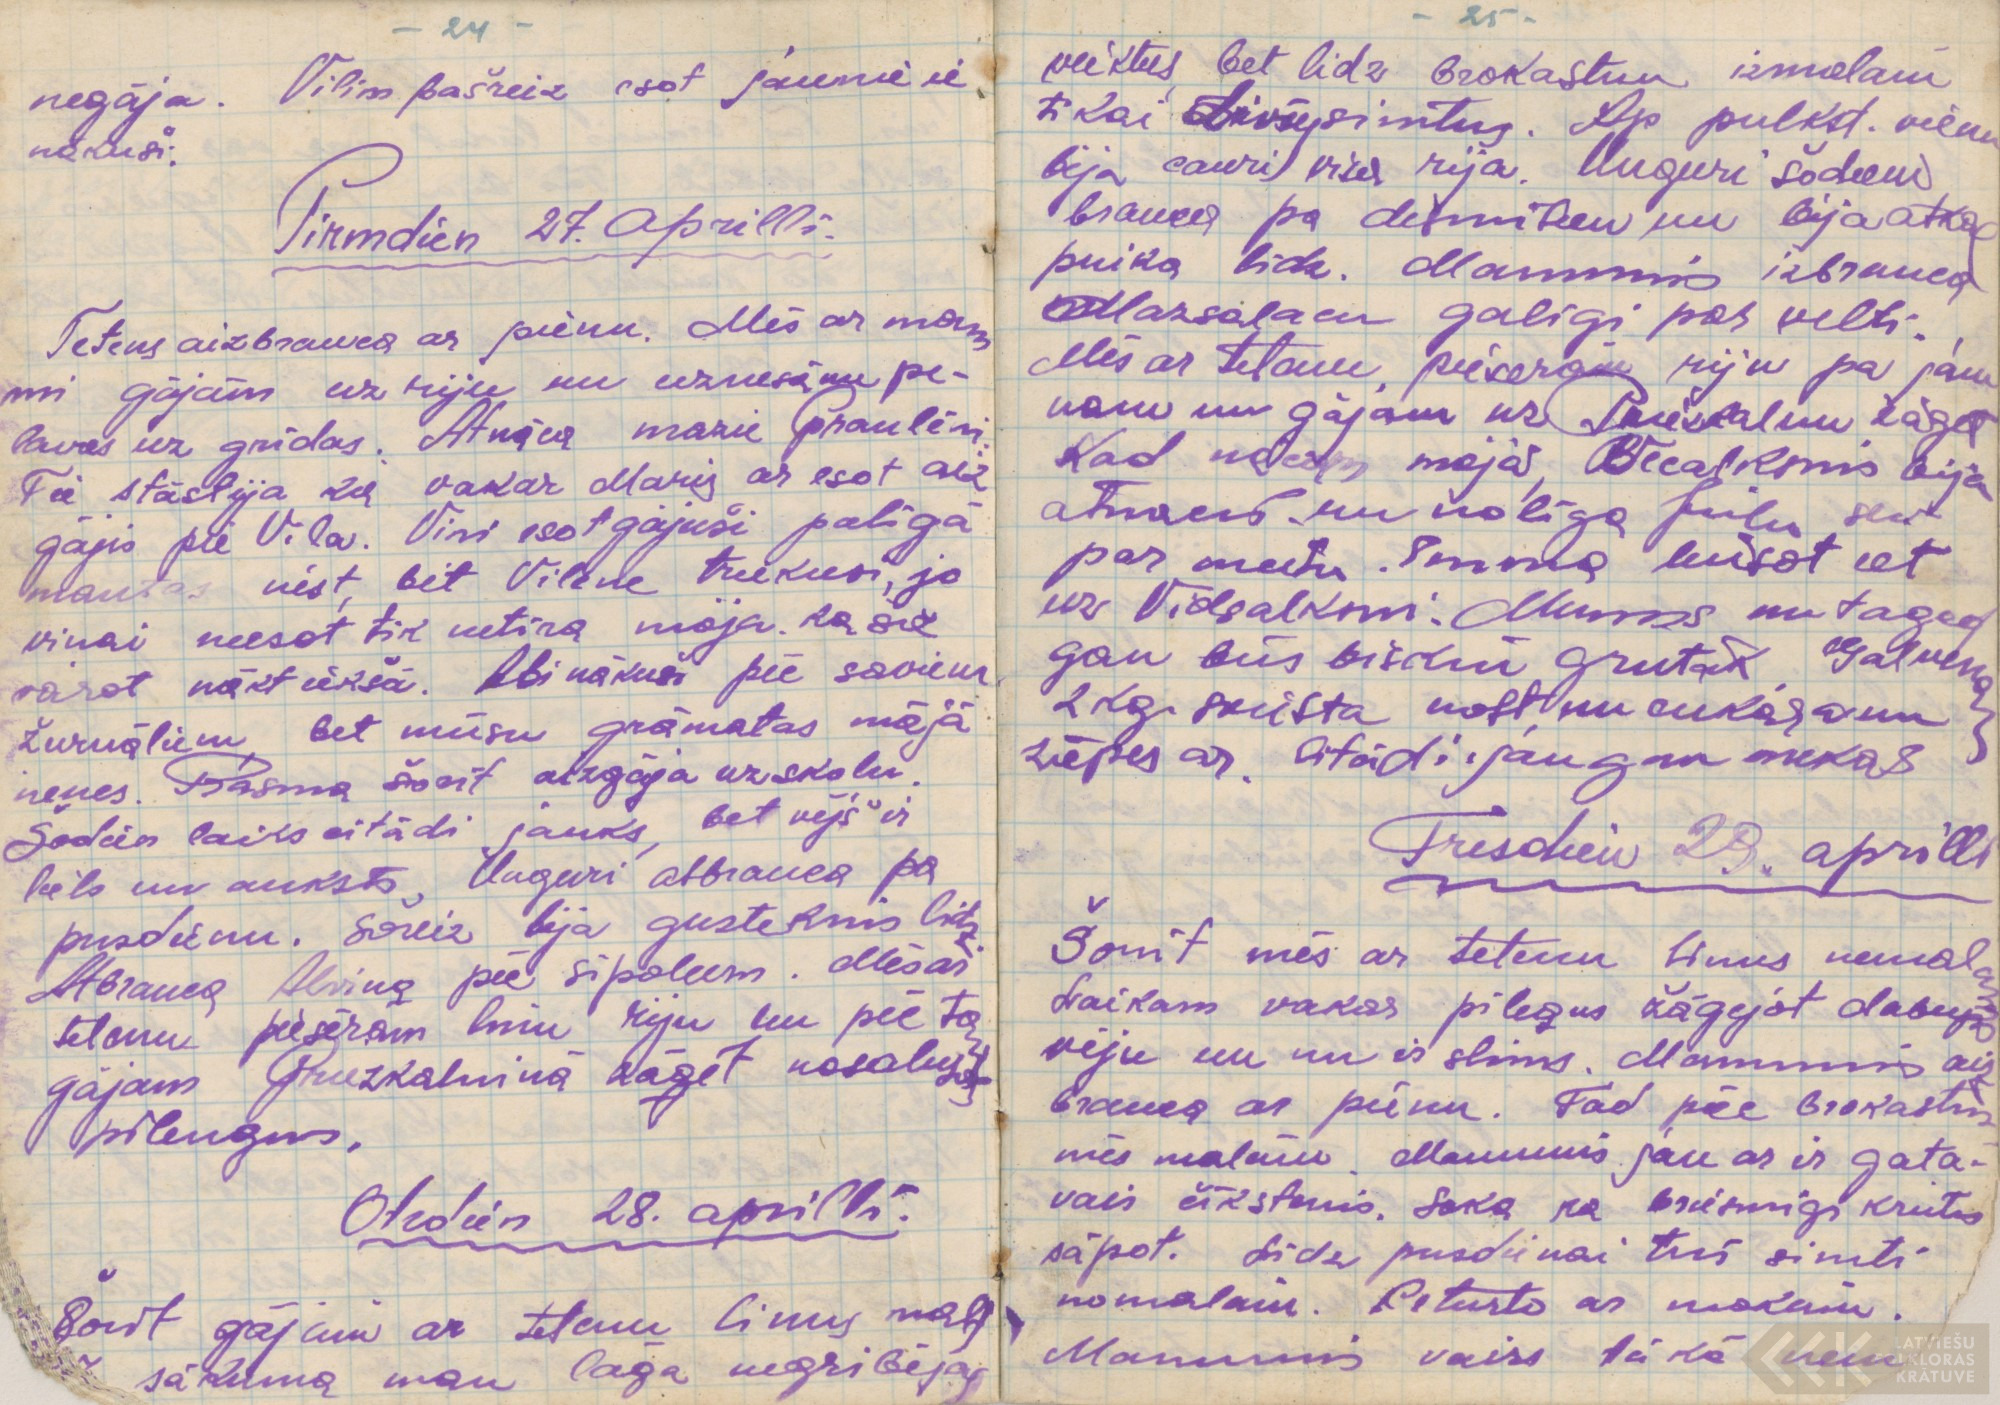 - 24 -
negāja. Vilim pašreiz esot jaunie ie
nākuši.
Pirmdien 27. Aprillī.
Tetens aizbrauca ar pienu. Mēs ar mam
mi gājām uz riju un uznesām pe-
lavas uz grīdas. Atnāca mazie Prauliņi.
Tie stāstīja ka vakar Maris ar esot aiz
gājis pie Viļa. Viņi esot gājuši palīgā
mantas nest, bet Vilene trukusi, jo
viņai neesot tik netīra māja. ka šie
varot nākt iekšā. Abi nākuši pie saviem
žurnāliem, bet mūsu grāmatas mājā
nenes. Rasma šorīt aizgāja uz skolu.
Šodien laiks citādi jauks, bet vējš ir
liels un auksts. Unguri atbrauca pa
pusdienu. Šoreiz bija gusteknis līdz.
Atbrauca Alvina pie sīpoliem. Mēs ar
tetenu piesērām linu riju un pie ta
gājam Priezkalniņā zāģēt nosalušos
pīlengus.
Otrdien 28. aprillī.
Šorīt gājām ar tetenu linus malt
sākumā man lāga negribējās
- 25 -
veikties, bet līdz brokastun izmalām
tikai divysimtus. Ap pulkst. vienu
bija cauri visa rija. Unguri šodien
brauca pa desmitien un bija atkal
puika līdz. Mammis izbrauca
Mazsalacu galīgi par velti.
Mēs ar tetenu, piesērām riju pa jau
nam un gājam uz Priezkalnu zāģet
Kad nācām mājās, Becalksnis bija
atnacis un nolīga Jūli sev
par meitu. Emma leišot iet
uz Vidsalksni. Mums nu tagad
gan būs biskiņ grutāk Galvena
2 kg. sviesta nost, nu cukāra un
ziepes ar. Citādi jau gan nekas
Tresdien 29. aprillī
Šorīt mēs ar tetenu linus nemalām
Laikam vakar pilegus zāģejot dabuja
vēju un nu ir slims. Mammis aiz
brauca ar pienu. Tad pēc brokastīm
mēs malām. Mammis jau ar ir gata-
vais čīkstonis. Saka ka briesmīgi krūtis
sāpot. Līdz pusdienai trīs simti
nomalām. Ceturto ar mokām.
Mammis vairs tā kā nem
LATVIEŠU
FOLKLORAS
KRĀTUVE